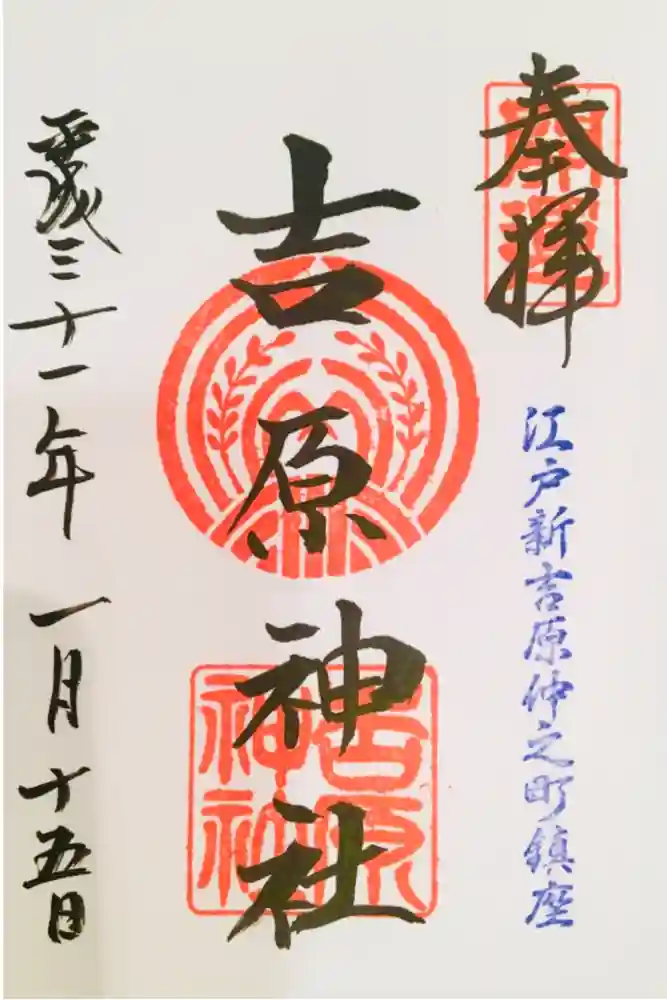 奉拝
開運
江戸新吉原仲之町鎮座
吉原神社
吉原神社
平成三十一年 一月十五日